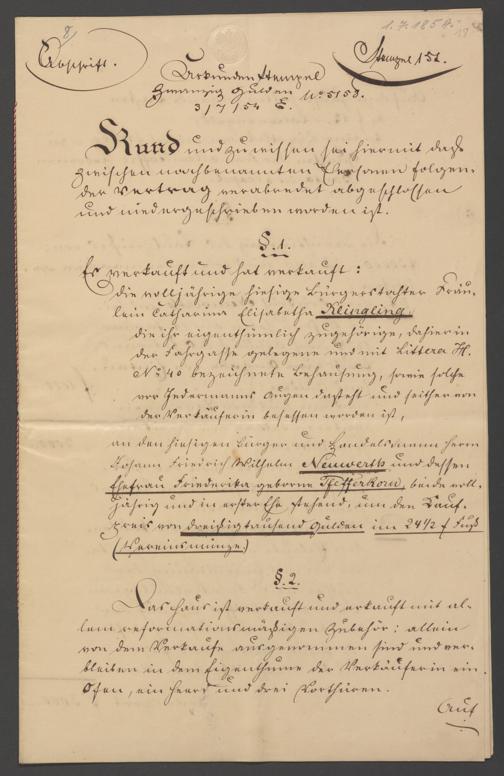 1.7.1854.
Abschrift.
Stempel 15 f.
Urkundenstempel
Zwanzig Gulden No 5158.
3/7/54 E.
Kund und zu wissen sei hiermit daß
zwischen nachbenannten Personen folgen-
der Vertrag verabredet abgeschlossen
und niedergeschrieben worden ist.
§.1.
Es verkauft und hat verkauft:
die volljährige hiesige Bürgerstochter Fräu-
lein Catharina Elisabetha Klingling
die ihr eigenthümlich zugehörige, dahier in
der Fahrgasse gelegene und mit Littera H.
No 40 bezeichnete Behausung, sowie solche
vor Jedermanns Augen dasteht und seither von
der Verkäuferin besessen worden ist,
an den hiesigen Bürger und Handelsmann Herrn
Johann Friedrich Wilhelm Neuwerth und dessen
Ehefrau Friederika geborne Pfefferkorn, beide voll-
jährig und in erster Ehe stehend, um den Kauf-
preis von dreißigtausend Gulden im 24 1/2 f Fuß
(Vereinsmünze.)
§.2.
Das Haus ist verkauft und erkauft mit al-
lem reformationsmäßigen Zubehör: allein
von dem Verkaufe ausgenommen sind und ver-
bleiben in dem Eigenthume der Verkäuferin ein
Ofen, ein Heerd und drei Vorthüren.
Auf